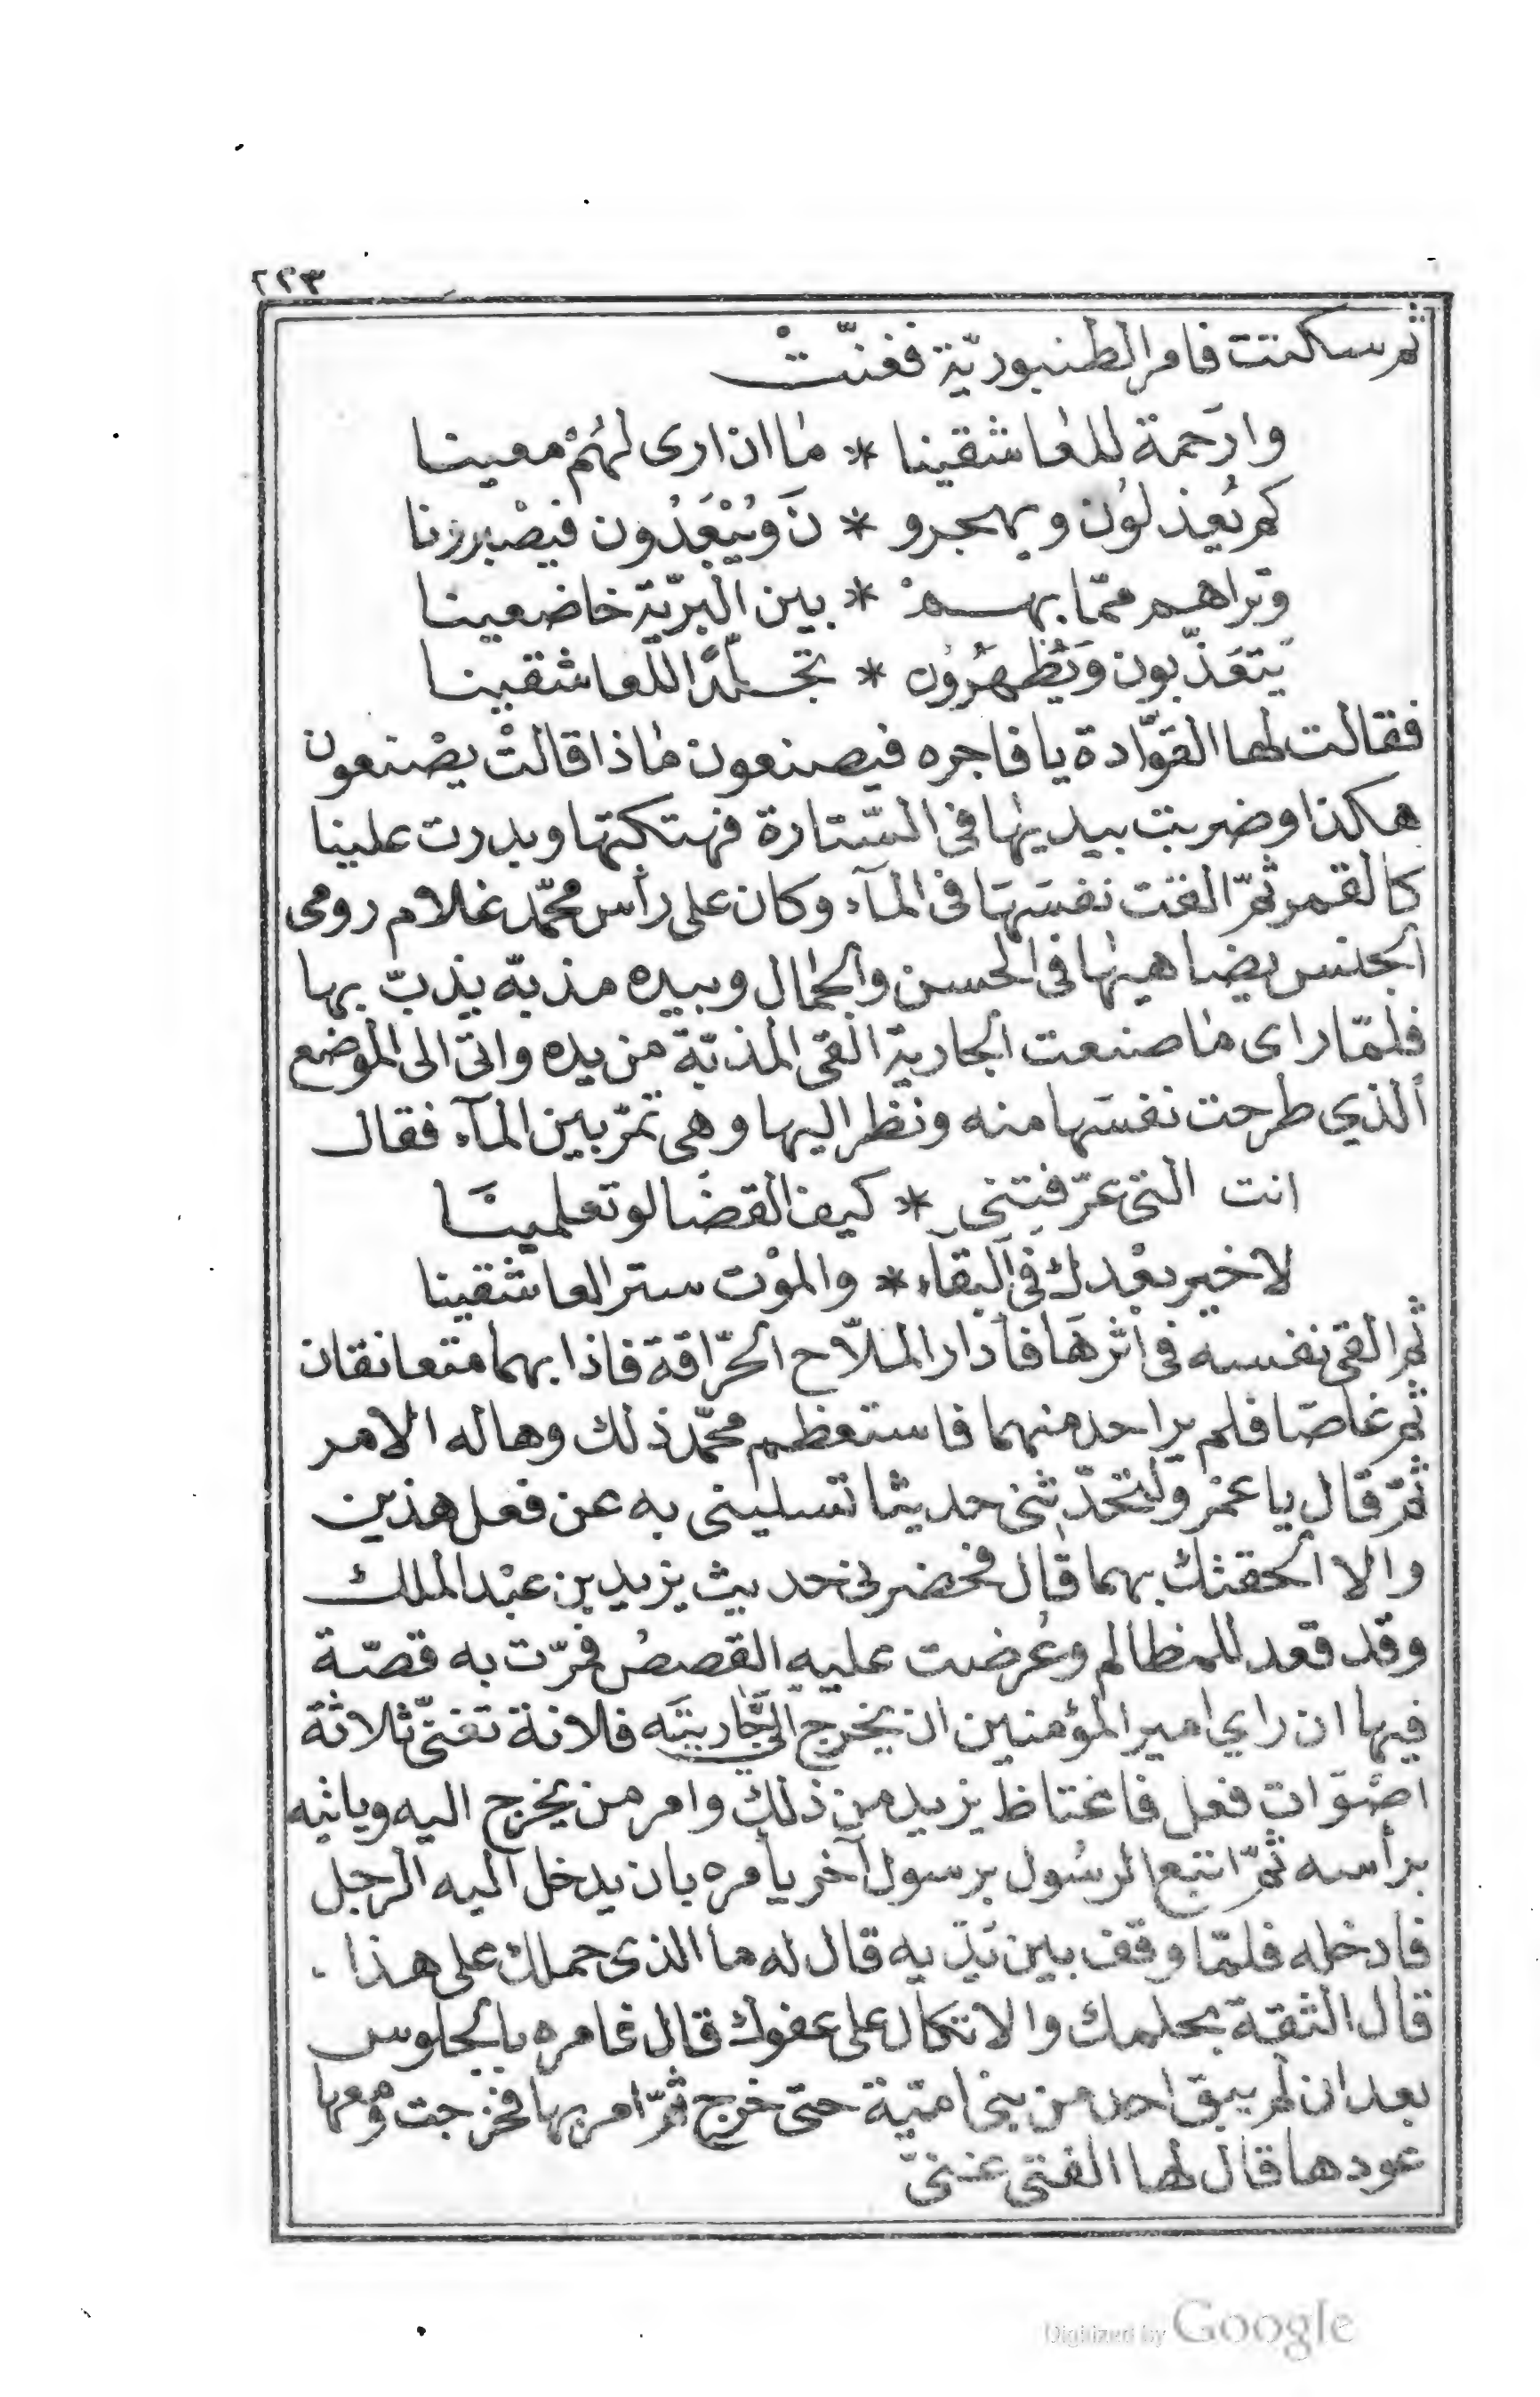 ٢٢٣
ثم سكتت فامر الطنبوريّة فغنّتْ
وارَحمة للعاشقينا * ما ان ارى لهُمْ معينا
كم يُعذلوُن ويهجرو * نَ وَيُبْعَدُون فيصْبرونا
وتراهم ممّا بهمْ * بين البريّة خاضعينا
يَتعَذّبون وَيَظْهَرُون * تجلّدًا للعاشقينا
فقالت لها القوّادة يا فاجره فيصنعون ماذا قالتْ يصْنعون
هكذا وضربت بيديها فى السّتارة فهتكتها وبدرت علينا
كالقمر ثمّ القت نفسَهَا فى المآء وكان على رأس محمّد غلام رومى
الجنس يضاهيها فى الحسن والجمال وبيده مذبّه يذبّ بها
فلمّا راى ما صنعت الجارية القى المذبّة من يده واتى الى الموضع
الذي طرحت نفسَها منه ونظر اليها وهى تمرّ بين المآء فقال
انت التى عرّفتِنى * كيف القضَا لو تعلمينَا
لا خير بعْدك فى البقاء * والموْت ستر العاشقينا
ثم القى نفسه فى اثرهَا فأدار الملّاح الحرّاقة فاذا بهما متعانقان
ثم غاصَا فلم ير احد منهما فاستعظم محمّد ذلك وهاله الامر
ثمّ قال يا عمْر ولتحدّثنى حديثا تسلينى به عن فعل هذين
والا الحقتك بهما قال فحضرنى حديث يزيد بن عبْد الملك
وقد قعد للمظالم وعُرضت عليه القصصُ فمرّت به قصّة
فيها ان راي امير المؤمنين ان يخرج الىَّ جاريتَه فلانة تغنّى ثلاثة
اصْوَات فعل فاغتاظ يزيد من ذلك وامر من يخرج اليه وياتيه
برأسه ثمّ اتبع الرسُول برسول آخر يأمره بان يدخل اليه الرجل
فادخله فلمّا وقف بين يَدَيه قال له ما الذى حملك على هذا
قال الثقة بحلمك والاتكال على عفوك قال فامره بالجلوس
بعد ان لم يبق احد من بنى اميّة حتى خرج ثمّ امر بها فخرجت ومعها
عودها قال لها الفتى غنىّ
Digitized by Google